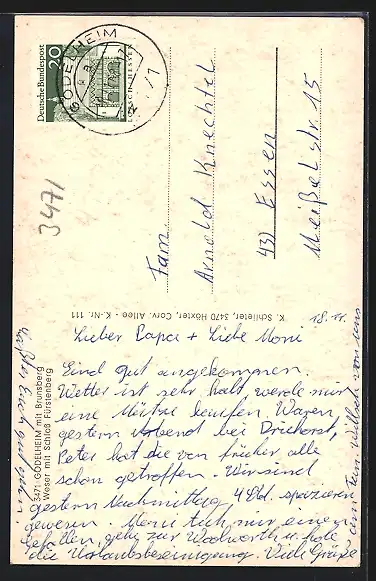 Deutsche Bundespost
20
LORSCH-HESSEN
GODELHEIM
3471
Fam.
Arnold Knechtel
43 Essen
Meißelstr. 15
K. Schlieter, 3470 Höxter, Corv. Allee - K.-Nr. 111
3471 GODELHEIM mit Brunsberg
Weser mit Schloß Fürstenberg
18.11.
Lieber Papa + Liebe Moni
Sind gut angekommen.
Wetter ist sehr kalt werde mir
eine Mütze kaufen. Waren
gestern Abend bei
Peter hat die von früher alle
schon getroffen Wir sind
gestern Nachmittag 4 Std. spazieren
gewesen. Moni tuh mir einen
Gefallen, gehe zur Woolworth u. hole
die Urlaubsbescheinigung. Viele Grüße
von uns
Laßt Euch gut gehn